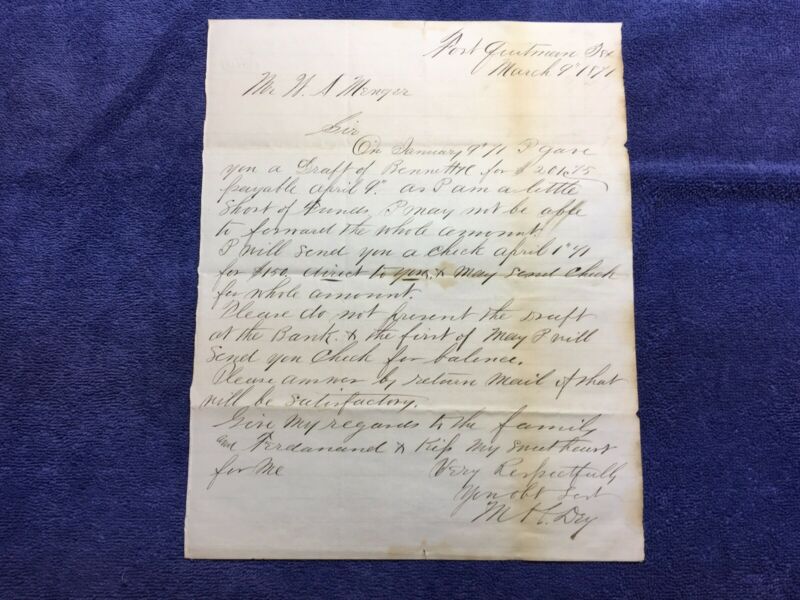 Fort Quitman Tex
March 9" 1871
Mr W. A Menger
Sir
On January 9"71 I gave
you a Draft of Bennett for $ 201.75
payable april 9". as I am a little
Short of Funds, I may not be able
to forward the whole amount.
I will send you a check april 1"71
for $150, direct to you, & may send check
for whole amount.
Please do not present the draft
at the Bank. & the first of May I will
send you check for balence.
Please answer by return mail if that
will be satisfactory.
Give my regards to the family
and Ferdanand & Kiss my sweetheart
for me
Very Respectfully
Your obt Svt
Dey